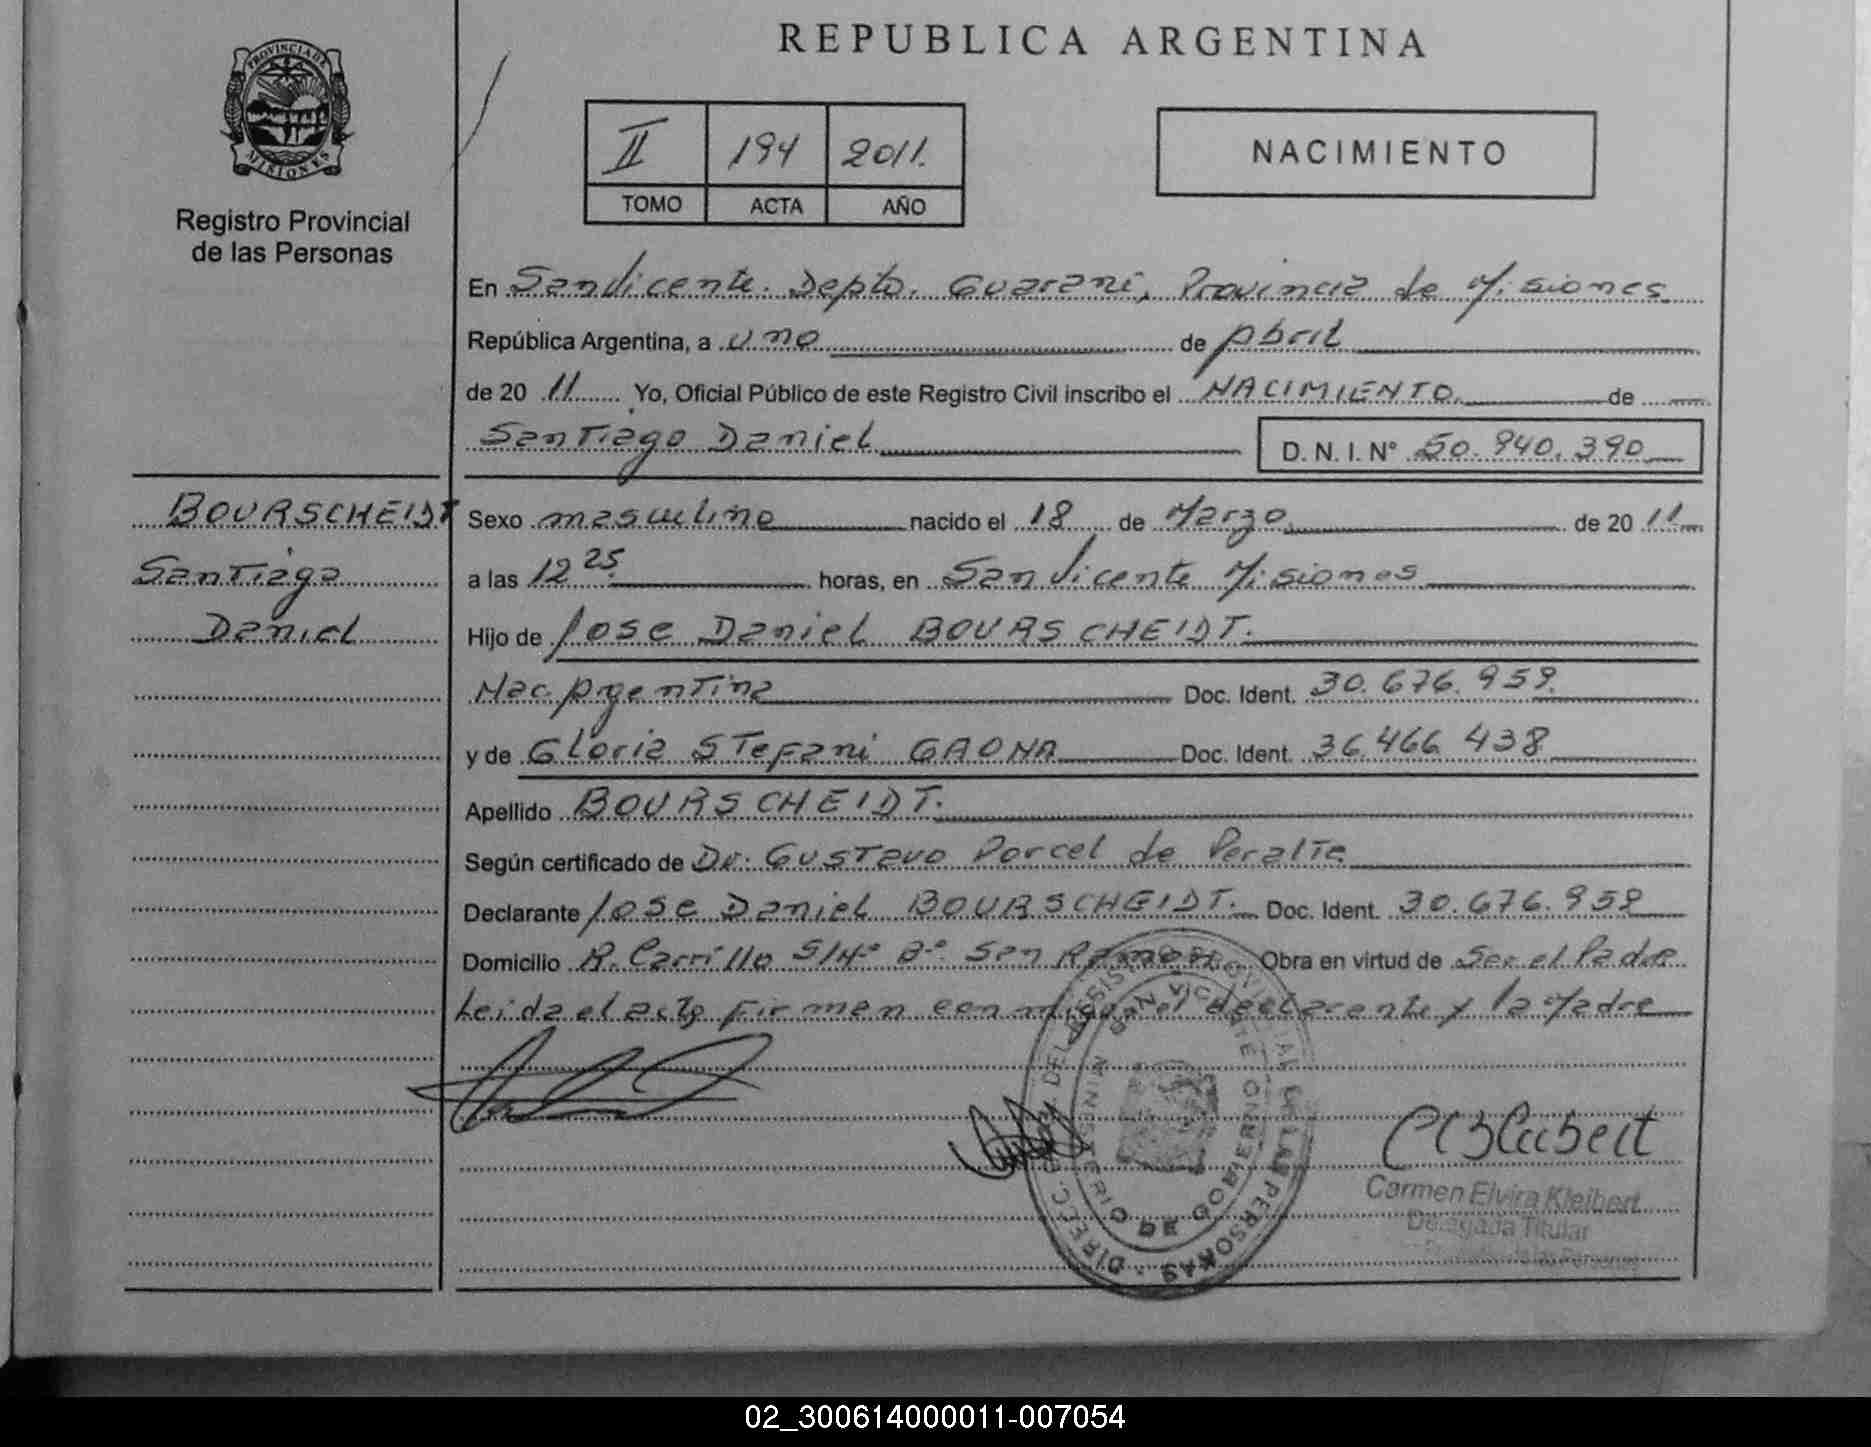 REPUBLICA ARGENTINA
PROVINCIA DE
MISIONES
Registro Provincial
de las Personas
II 194 2011.
TOMO ACTA AÑO
NACIMIENTO
En San Vicente. Depto. Guarani, Provincia de Misiones
República Argentina, a uno de Abril
de 20 11 Yo, Oficial Público de este Registro Civil inscribo el NACIMIENTO de
Santiago Daniel D. N. I. Nº 50.940.390
BOURSCHEIDT
Santiago
Daniel
Sexo masculino nacido el 18 de Marzo de 20 11
a las 12 25 horas, en San Vicente Misiones
Hijo de Jose Daniel BOURSCHEIDT.
Nac. Argentina Doc. Ident. 30.676.959.
y de Gloria STefani GAONA Doc. Ident. 36.466.438
Apellido BOURSCHEIDT.
Según certificado de Dr: GUSTavo Porcel de Peralta
Declarante Jose Daniel BOURSCHEIDT. Doc. Ident. 30.676.959
Domicilio R. Carrillo S/Nº Bº. San Ramon. Obra en virtud de Ser el Padre
Leida el acta Firman con migo el declarante y la Madre
DIREC. GRAL. DEL REGISTRO PROVINCIAL DE LAS PERSONAS
SAN VICENTE
MINISTERIO DE GOBIERNO
Carmen Elvira Kleibert
Delegada Titular
02_300614000011-007054